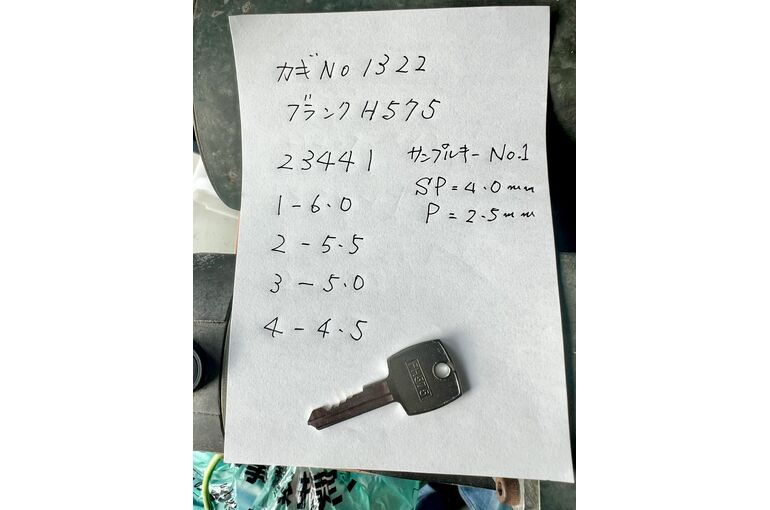 カギNo 1322
ブランク H575
23441
サンプルキー No.1
SP=4.0mm
P=2.5mm
1-6.0
2-5.5
3-5.0
4-4.5